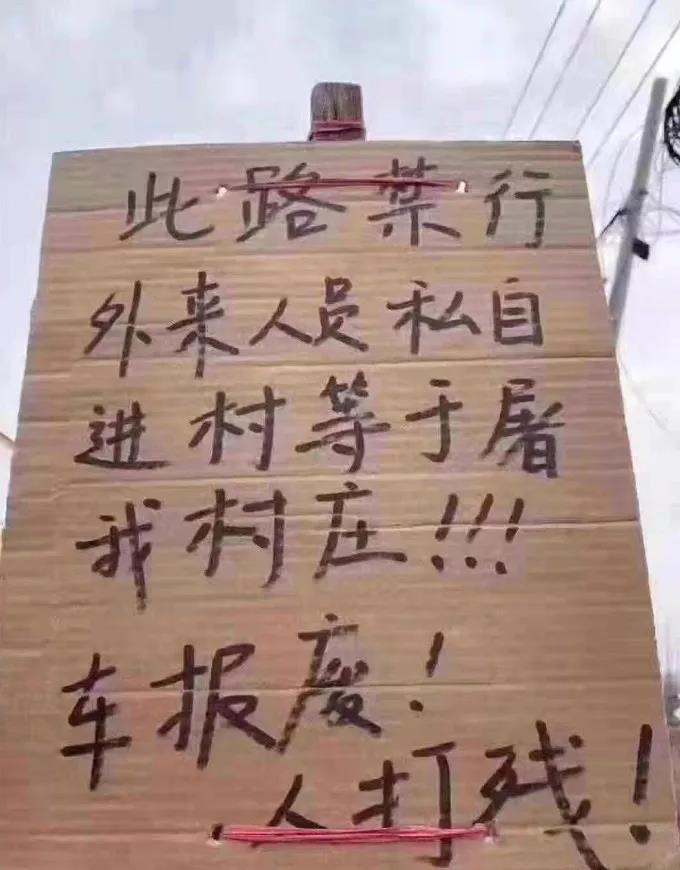 此路禁行
外来人员私自
进村等于屠
我村庄!!!
车报废!
人打残!